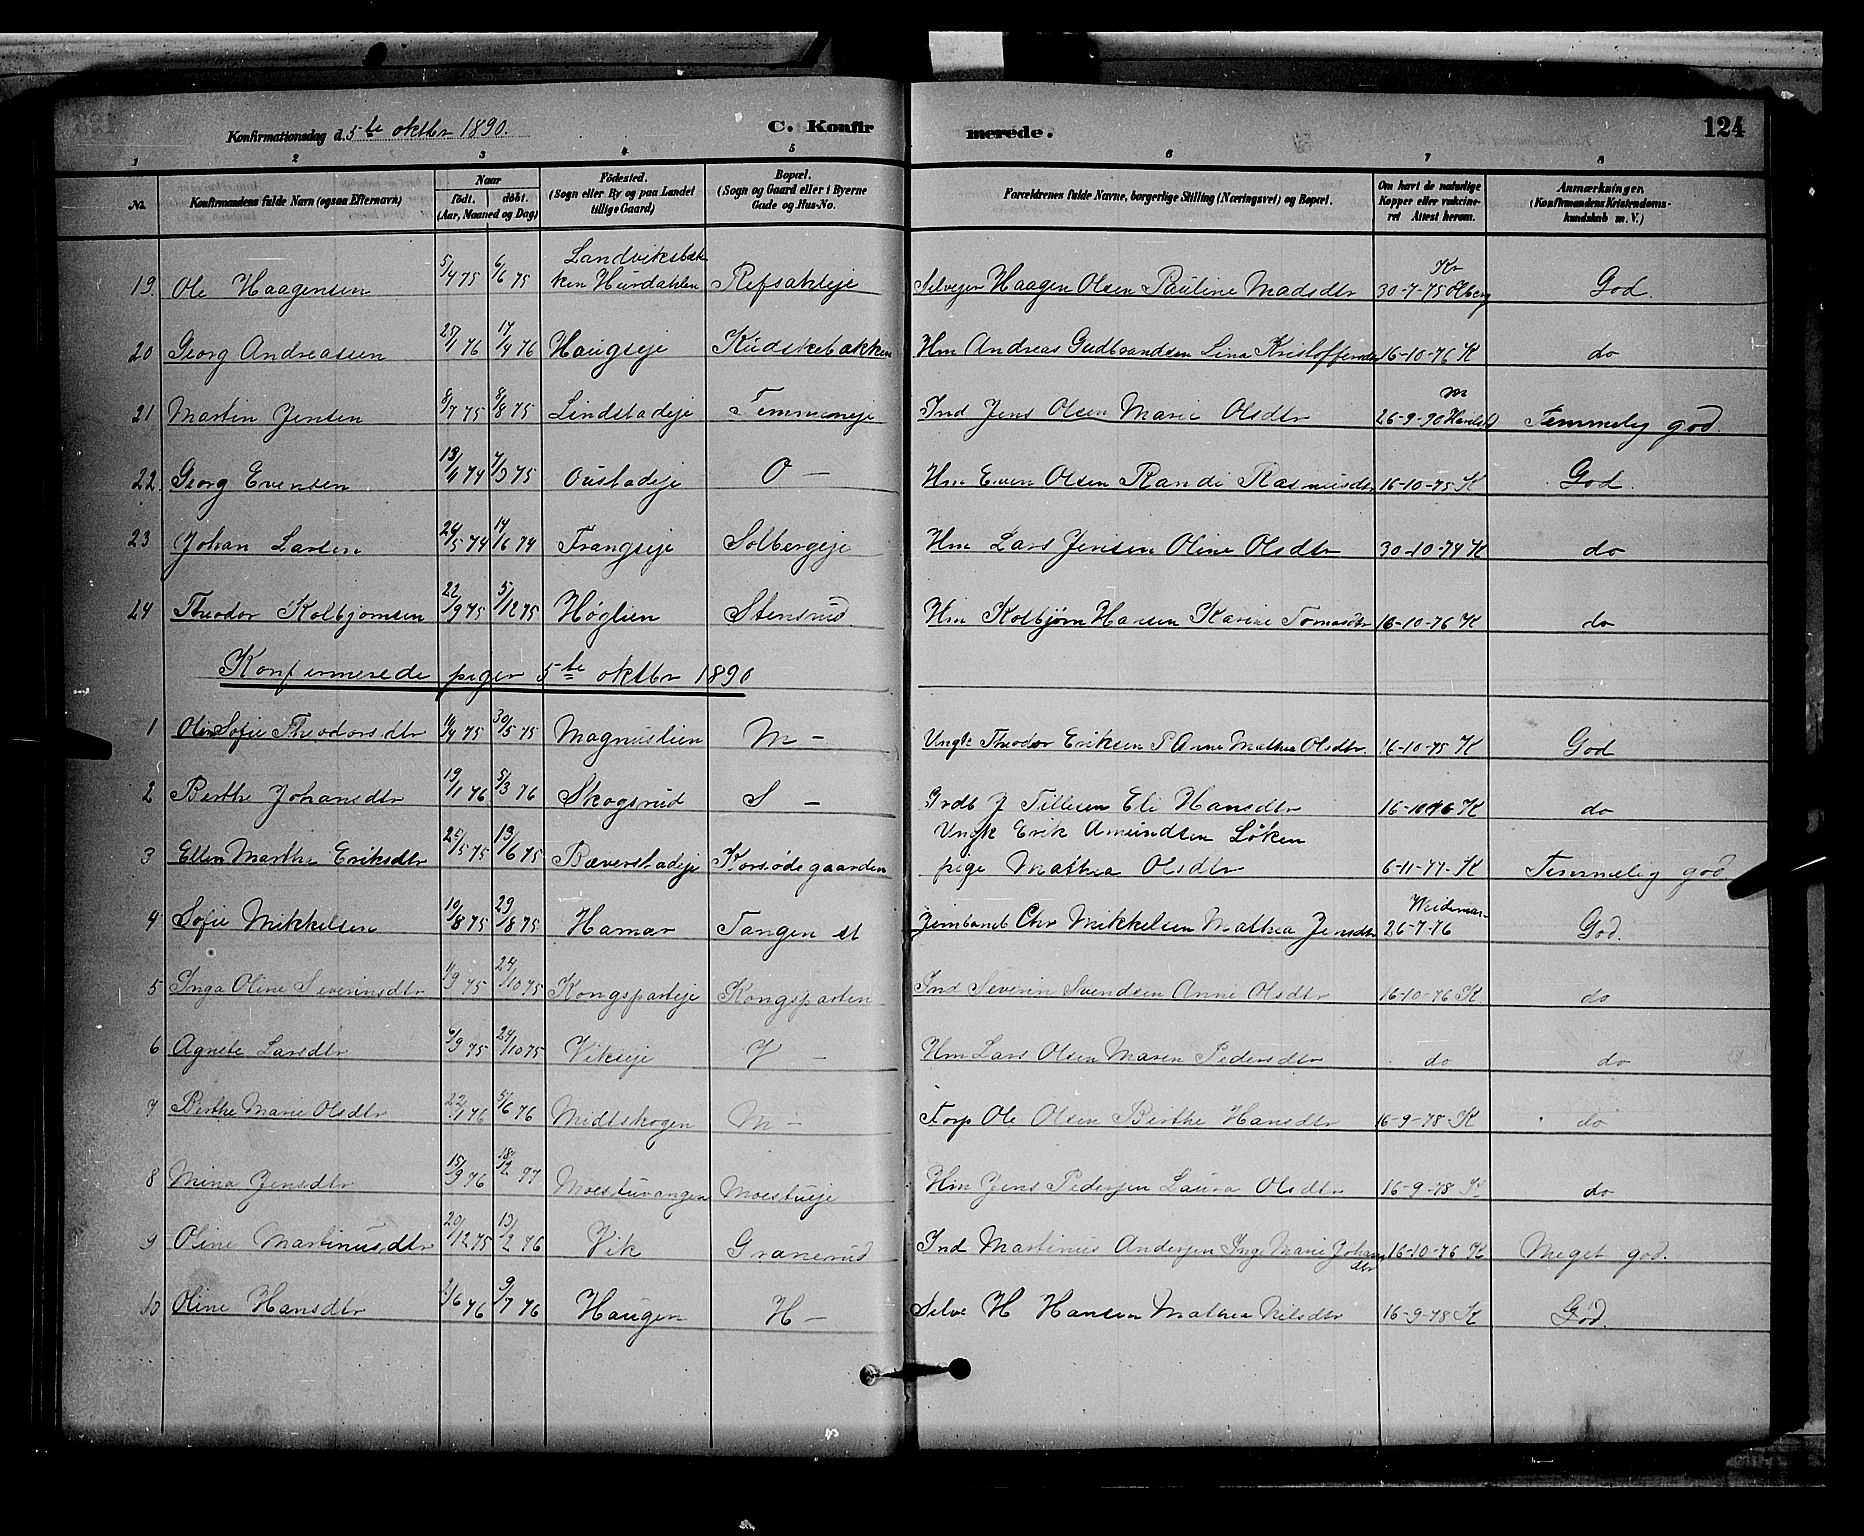 Konfirmationsdag d. 5te oktbr 1890. C. Konfirmerede. 124
1 2 3 4 5 6 7 8
No. Konfirmandens fulde Navn (ogsaa Efternavn) Naar født. døbt. (Aar, Maaned og Dag) Fødested. (Sogn eller By og paa Landet tillige Gaard) Bopæl. (Sogn og Gaard eller i Byerne Gade og Hus-No. Forældrenes fulde Navne, borgerlige Stilling (Næringsvei) og Bopæl. Om havt de naturlige Kopper eller vakcineret Attest herom. Anmærkninger. (Konfirmandens Kristendomskundskab m. V.)
19. Ole Haagensen 5/4 75 6/6 75 Landviksbakken Hurdahlen Refsakleje Selveger Haagen Olsen Pauline Madsdtr 30-7-75 Kr Olberg God.
20 Georg Andreassen 25/1 76 17/4 76 Haugseje Kudskebakken Hm Andreas Gudbrandsen Lina Kristoffersdtr 16-10-76 K do
21 Martin Jensen 8/7 75 8/8 75 Lindstadeje Temmeneje Ind Jens Olsen Marie Olsdtr 26-9-90 M Temmelig god.
22. Georg Evensen 13/11 74 7/3 75 Oustadeje O — Hm Even Olsen Randi Rasmusdtr 16-10-75 K God.
23 Johan Larsen 24/5 74 14/6 74 Frangseje Solbergeje Hm Lars Jensen Oline Olsdtr 30-10-74 K do
24 Theodor Kolbjørnsen 22/9 75 5/12 75 Høglien Stensrud Hm Kolbjørn Hansen Karine Tomasdtr 16-10-76 K do
Konfirmerede piger 5te oktbr 1890
1 Olin Sofie Theodorsdtr 14/4 75 30/5 75 Magnuslien M — Ungk Theodor Eriksen P Anne Mathea Olsdtr. 16-10-75 K God
2 Berthe Johansdtr 19/1 76 5/3 76 Skogsrud S — Grdb J Tillesen Eli Hansdtr 16-10-76 K do
3 Ellen Marthe Eriksdtr 25/5 75 13/6 75 Bæverstadeje Korsødegaarden Ungk Erik Amundsen Løken
pige Mathea Olsdtr 6-11-77. K Temmelig god.
4 Sofie Mikkelsen 10/8 75 29/8 75 Hamar Tangen st Jernbanebt Chr Mikkelsen Mathea Jensdtr 26-7-76 God.
5 Inga Oline Severinsdtr 11/9 75 24/10 75 Kongsparteje Kongsparten Ind Severin Svendsen Anne Olsdtr 16-10-76 K do
6 Agnete Larsdtr 7/9 75 24/10 75 Vikseje V — Hm Lars Olsen Maren Pedersdtr do do
7 Berthe Marie Olsdtr 22/1 76 5/6 76 Midtskogen M — Torp Ole Olsen Berthe Hansdtr 16-9-78 K do
8 Mina Jensdtr 15/9 76 18/2 77 Moestuvangen Moestueje Hm Jens Pedersen Laura Olsdtr 16-9-78 K do
9 Oline Martinusdtr 20/12 75 13/2 76 Vik Granerud Ind Martinus Andersen Inge Marie Johansdtr 16-10-76 K Meget god.
10 Oline Hansdtr 2/6 76 9/7 76 Haugen H — Selve H Hansen Mathea Nilsdtr 16-9-78 K God.